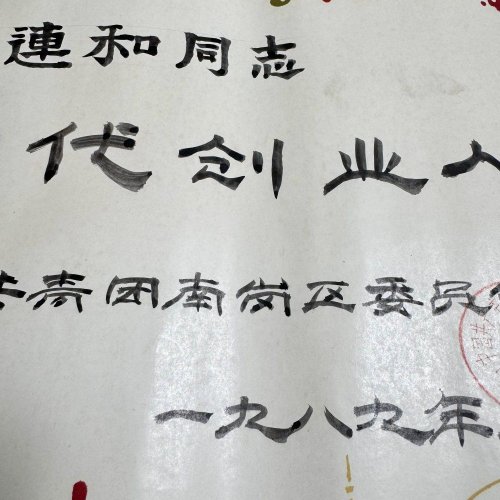 連和同志
代创业人
共青团南岗区委员会
一九八九年